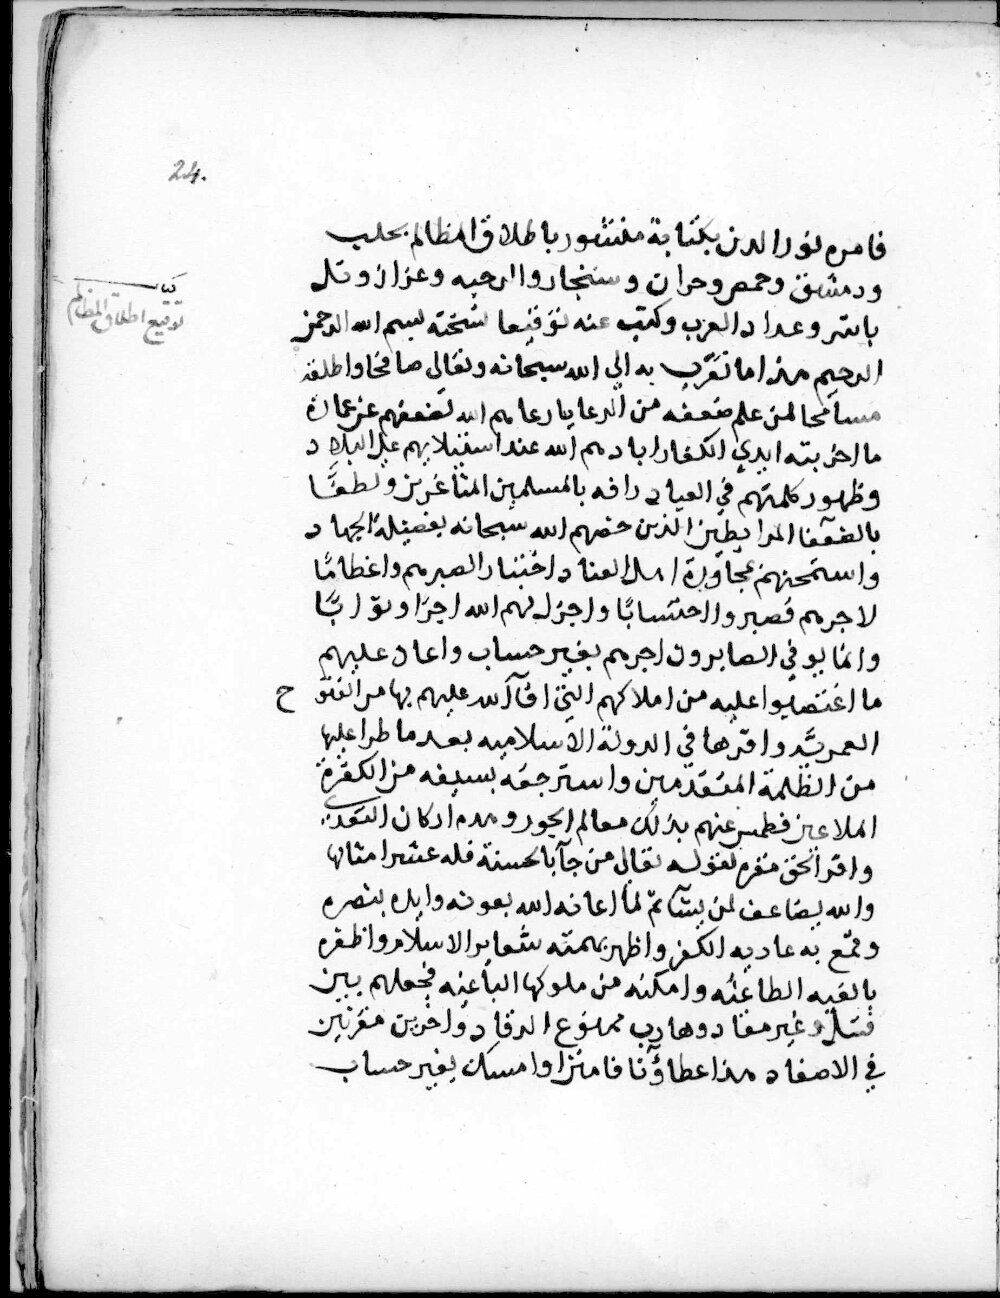 24.
فامره نور الدين بكتابة منشور باطلاق المظالم بحلب
ودمشق وحمص وحران وسنجار والرحبه وعزاز وتل
باشر وعداد العرب وكتب عنه توقيعا نسخته بسم الله الرحمن
الرحيم هذا ما تقرب به الي الله سبحانه وتعالى صافحا واطلقه
مسامحا لمن علم ضعفه من الرعايا رعاهم الله لضعفهم عن عمارة
ما اخربته ايدي الكفار ابادهم الله عند استيلايهم علي البلاد
وظهور كلمتهم في العباد رافه بالمسلمين المثاغرين ولطفًا
بالضعفآ المرابطين الذين خصهم الله سبحانه بفضيلة الجهاد
واستمحنهم بمجاورة اهل العناد اختبارا لصبرهم واعظامًا
لاجرهم فصبروا احتسابًا واجزل لهم الله اجرًا وثوابًا
وانما يوفي الصابرون اجرهم بغير حساب واعاد عليهم
ما اغتصبوا عليه من املاكهم التي افآ الله عليهم بها من الفتو ح
العمريَّه واقرها في الدولة الاسلاميه بعد ما طرا عليها
من الظلمة المتقدمين واسترجعه بسيفه من الكفرة
الملاعين فطمس عنهم بذلك معالم الجور وهدم اركان التعدي
واقر الحق مقره لقوله تعالى من جآ بالحسنة فله عشر امثالها
والله يضاعف لمن يشآ ثم لما اعانه الله بعونه وايده بنصره
وقمع به عاديه الكفر واظهر بهمته شعاير الاسلام واظفره
بالفيه الطاغيه وامكنه من ملوكها الباغيه فجعلهم بين
قتيل غير مقاد وهارب ممنوع الرقاد واخرين مقرنين
في الاصفاد هذا عطاؤنا فامنن او امسك بغير حساب
توقيع اطلاق المظالم